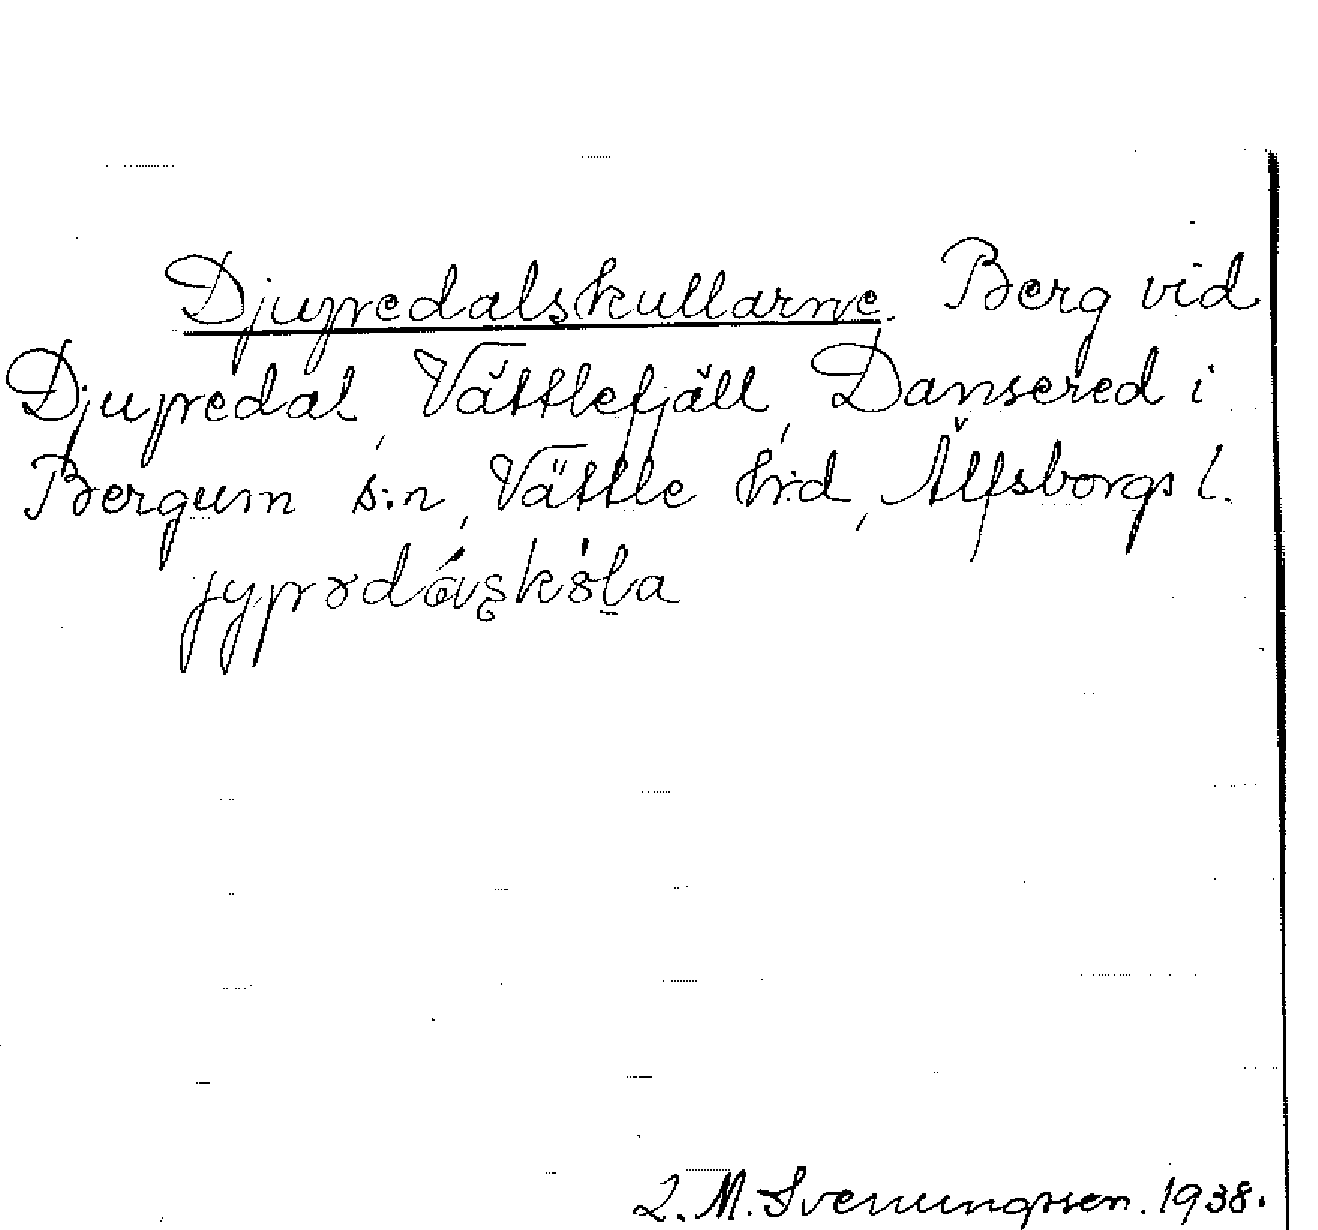 Djupedalskullarne. Berg vid
Djupedal, Vättlefjäll, Dansered i
Bergum s:n, Vättle hrd, Älfsborgs l.
jypədáɷskɵ́la
L. M. Svenungsson. 1938.